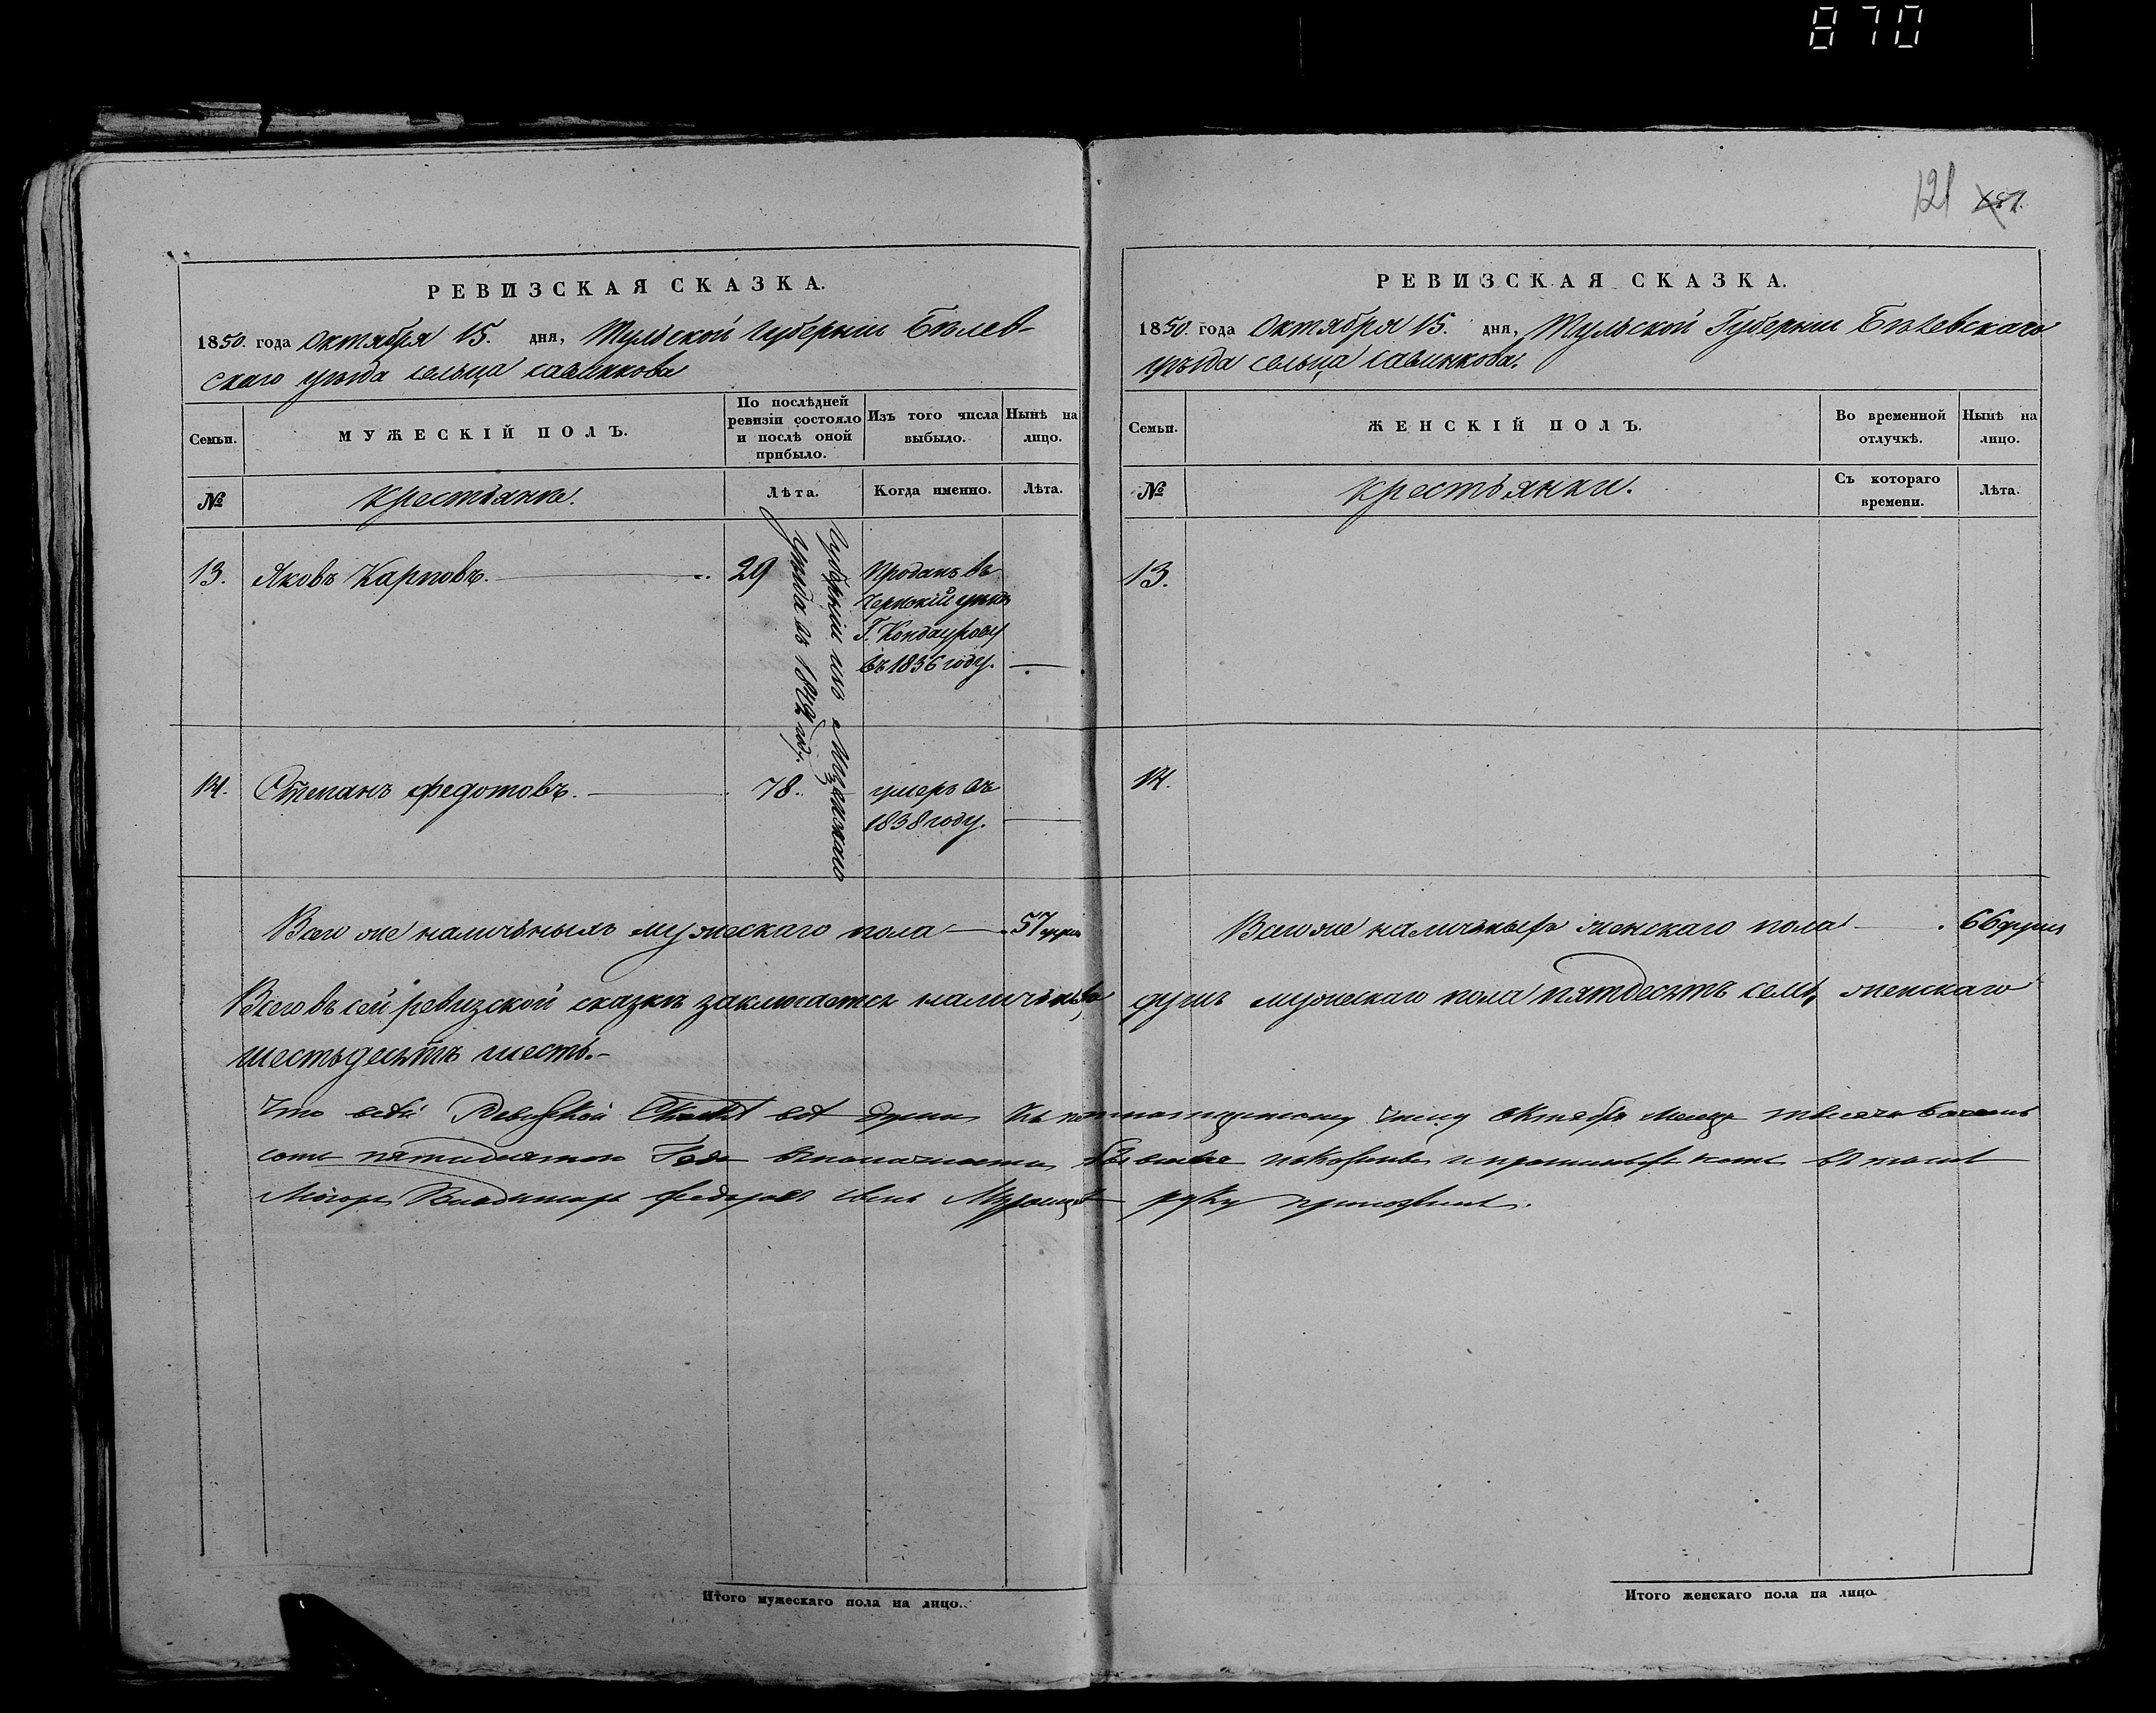 870
121
РЕВИЗСКАЯ СКАЗКА.
1850. года Октября 15. дня, Тульской Губерніи Бѣлев-
скаго уѣзда сельца савинкова
Семьи.
МУЖЕСКІЙ ПОЛЪ.
По послѣдней
ревизіи состояло
и послѣ оной
прибыло.
Изъ того числа
выбыло.
Нынѣ на
лицо.
№
Крестьяне.
Лѣта.
Когда именно.
Лѣта.
13. Яковъ Карповъ. 29
Проданъ въ
Чернскій уѣздъ
Г. Кондаурову
въ 1836 году.
Губерніи изъ
уѣзда въ
14. Степанъ Федотовъ. 78.
умеръ въ
1838 году.
Всего же наличныхъ мужескаго пола 57 душъ
РЕВИЗСКАЯ СКАЗКА.
1850. года Октября 15. дня, Тульской Губерніи Бѣлевскаго
уѣзда сельца савинкова.
Семьи.
ЖЕНСКІЙ ПОЛЪ.
Во временной
отлучкѣ.
Нынѣ на
лицо.
№
Крестьянки.
Съ котораго
времени.
Лѣта.
13.
14.
Всего же наличныхъ женскаго пола 66 душъ
Всего въ сей ревизской сказкѣ заключается наличныхъ душъ мужескаго пола пятдесятъ семь, женскаго
шестьдесятъ шесть.
Что Ревизской всѣ души числу Октября тысяча восемь
сотъ пятидесятаго Года и
Владимеръ Федоровъ сынъ руку приложилъ.
Итого мужескаго пола на лицо.
Итого женскаго пола на лицо.